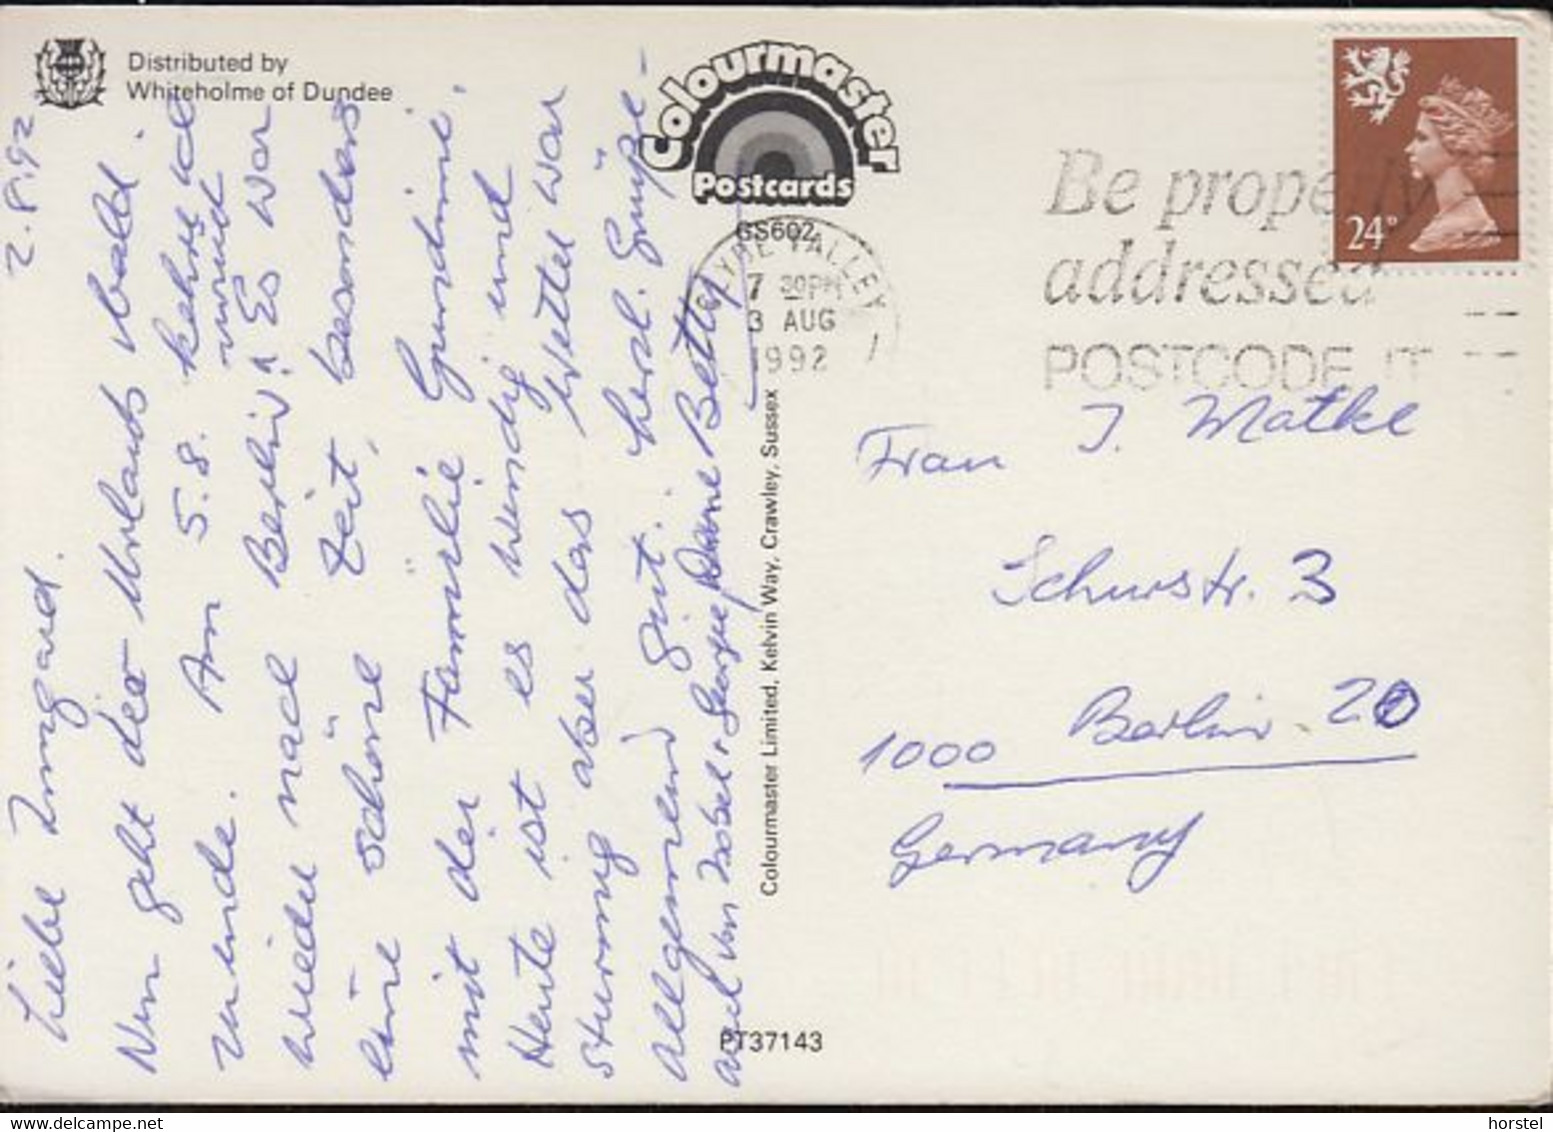 Distributed by
Whiteholme of Dundee
Colourmaster
Postcards
GS602
CLYDE VALLEY
7 30PM
3 AUG
1992
Be properly
addressed
POSTCODE IT
24P
2.8.92
Liebe Irmgard.
Nun geht der Urlaub bald
zu ende. Am 5.8. kehre ich
wieder nach Berlin zurück. Es war
eine schöne Zeit, besonders
mit der Familie
Heute ist es windig und
stürmig aber das Wetter war
allgemein gut. herzl. Grüße
auch von Isobel + George Deine Betty
Colourmaster Limited, Kelvin Way, Crawley, Sussex
PT37143
Frau I. Matke
Ichurstr. 3
1000 Berlin 20
Germany
horstel